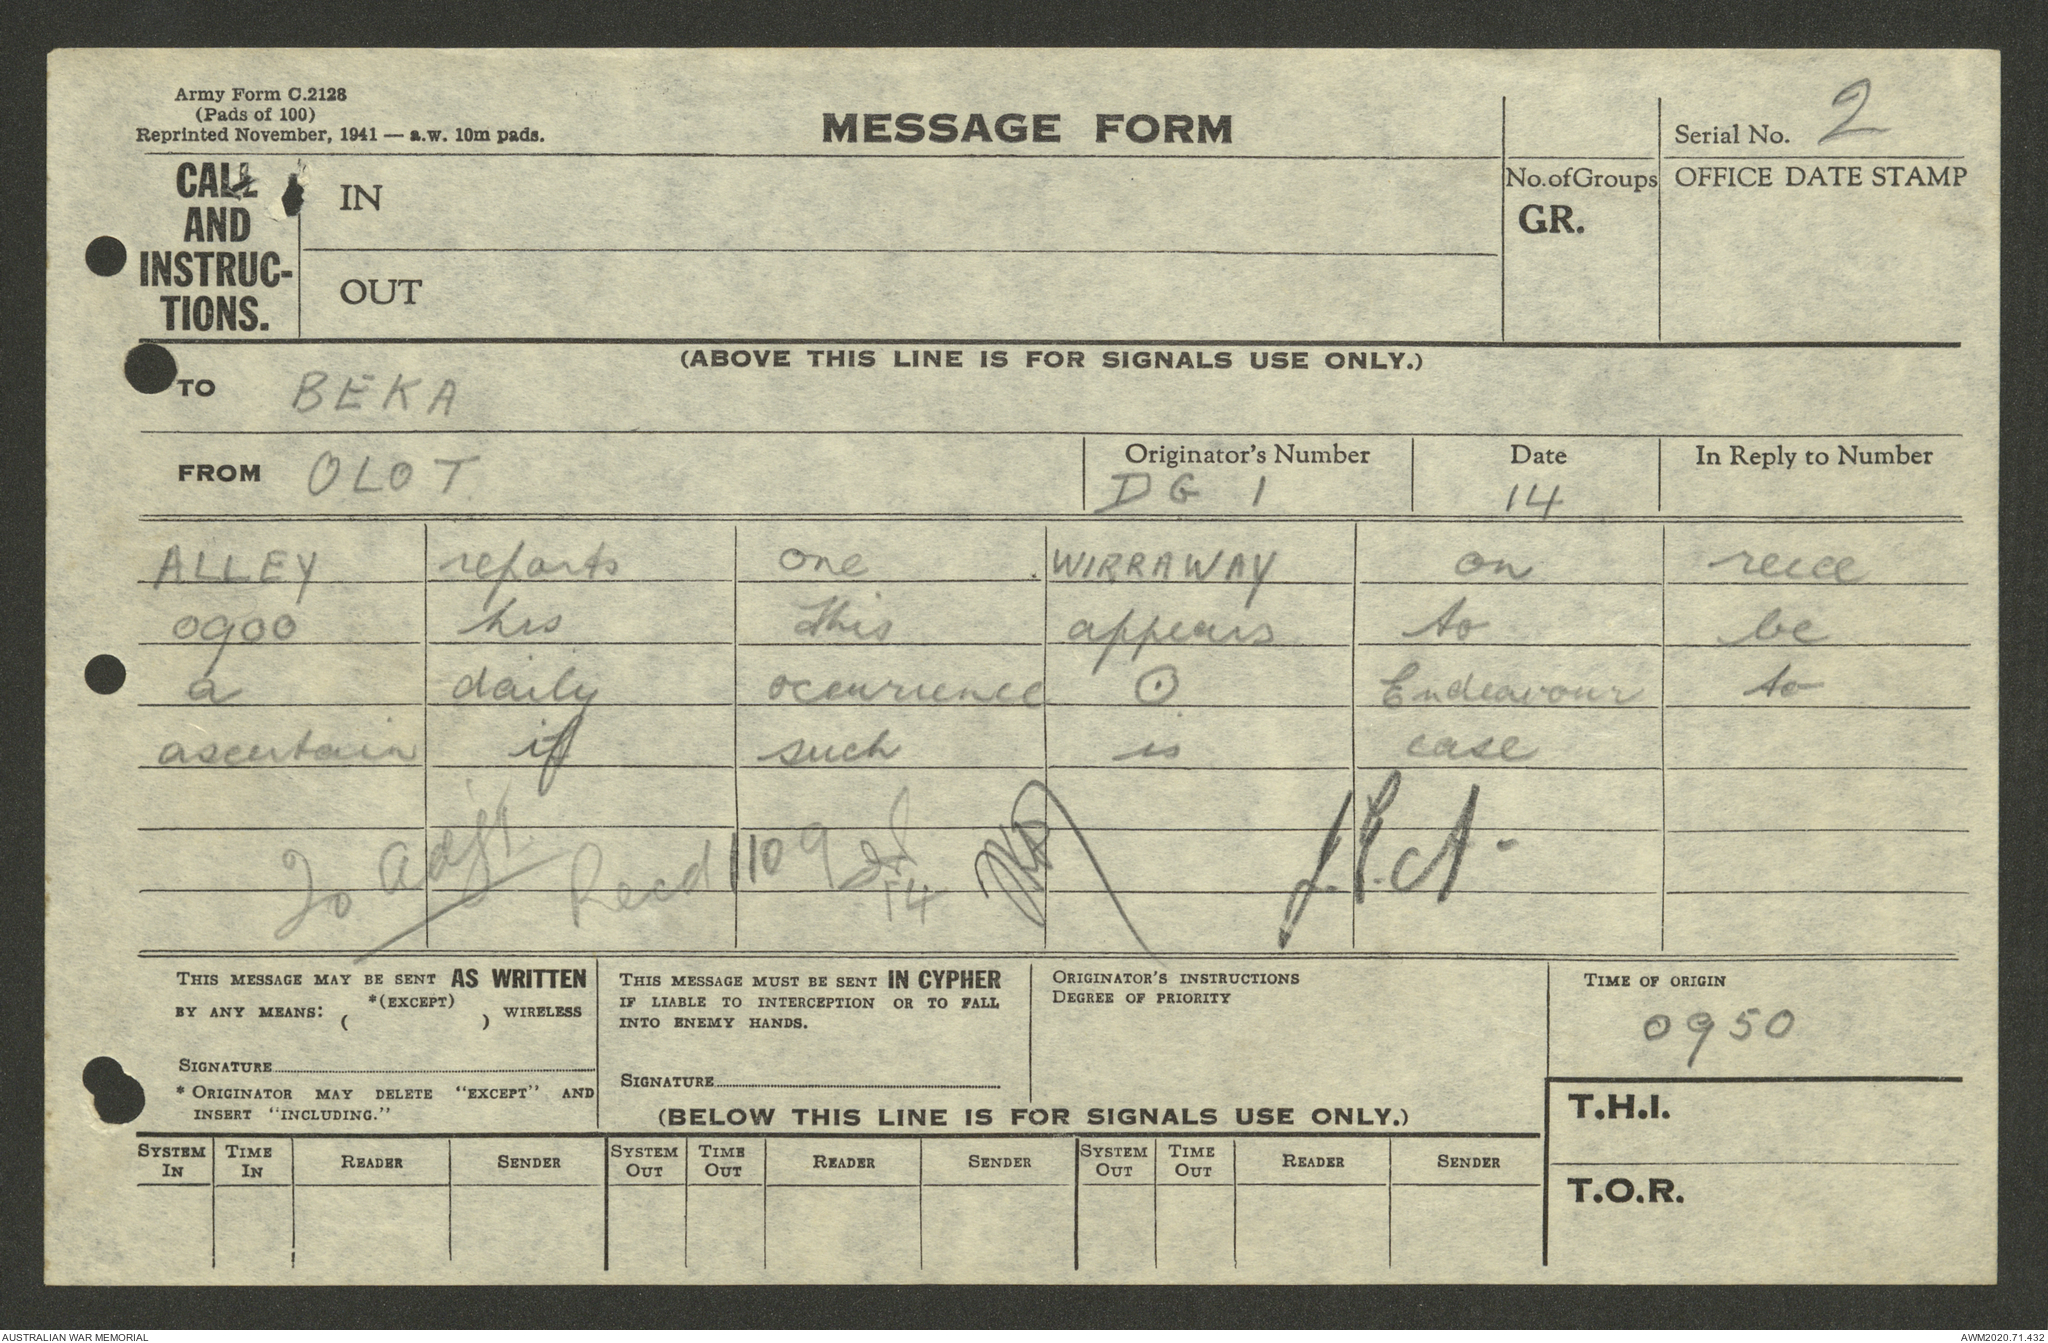 Army Form C.2128
(Pads of 100)
Reprinted November, 1941 — a.w. 10m pads.
MESSAGE FORM
Serial No. 2
CALL AND INSTRUC-TIONS.
IN
OUT
No. of Groups
GR.
OFFICE DATE STAMP
(ABOVE THIS LINE IS FOR SIGNALS USE ONLY.)
TO BEKA
FROM OLOT
Originator's Number
DG 1
Date
14
In Reply to Number
ALLEY reports one WIRRAWAY on recce
0900 hrs This appears to be
a daily ocurrience ⊙ Endeavour to
ascertain if such is case
To Adjt. Recd 1109 14
THIS MESSAGE MAY BE SENT AS WRITTEN
BY ANY MEANS: *(EXCEPT) WIRELESS
( )
SIGNATURE
* ORIGINATOR MAY DELETE "EXCEPT" AND
INSERT "INCLUDING."
THIS MESSAGE MUST BE SENT IN CYPHER
IF LIABLE TO INTERCEPTION OR TO FALL
INTO ENEMY HANDS.
SIGNATURE
ORIGINATOR'S INSTRUCTIONS
DEGREE OF PRIORITY
TIME OF ORIGIN
0950
(BELOW THIS LINE IS FOR SIGNALS USE ONLY.)
T.H.I.
T.O.R.
SYSTEM IN TIME IN READER SENDER SYSTEM OUT TIME OUT READER SENDER SYSTEM OUT TIME OUT READER SENDER
AUSTRALIAN WAR MEMORIAL
AWM2020.71.432